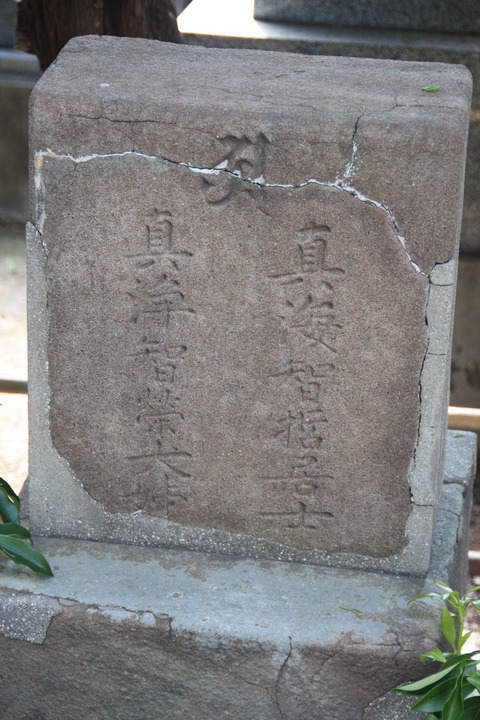 真海智哲居士
真浄智榮大姉